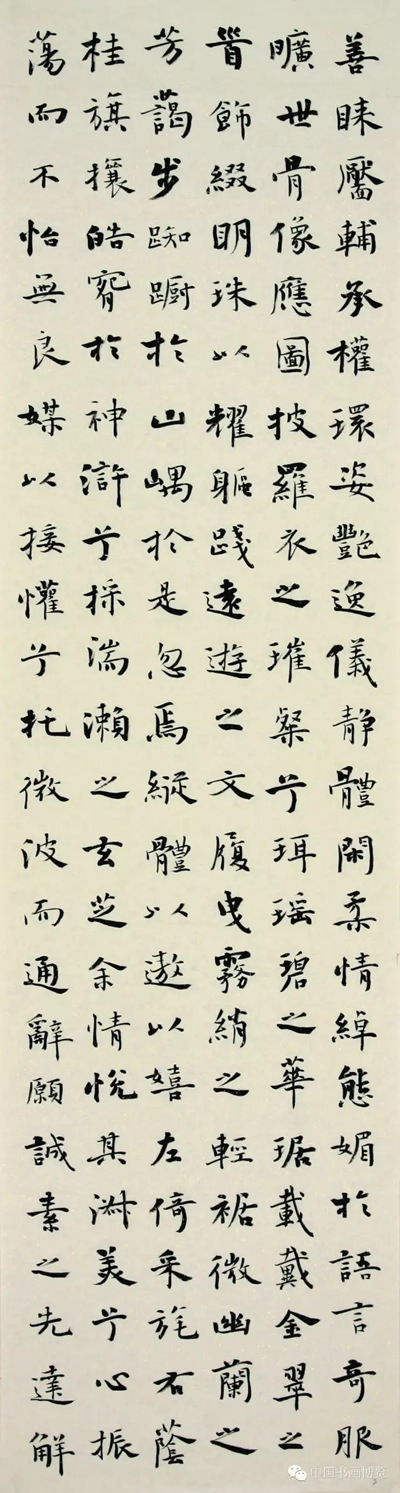 善睞靨輔承權環姿豔逸儀靜體閑柔情綽態媚於語言奇服
曠世骨像應圖披羅衣之璀粲兮珥瑤碧之華琚載戴金翠之
首飾綴明珠以耀軀踐遠遊之文履曳霧綃之輕裾微幽蘭之
芳藹步踟躕於山嵎於是忽焉縱體以遨以嬉左倚采旄右蔭
桂旗攘皓腕於神滸兮採湍瀨之玄芝余情悅其淑美兮心振
蕩而不怡無良媒以接懽兮托微波而通辭願誠素之先達解
中国书画博览